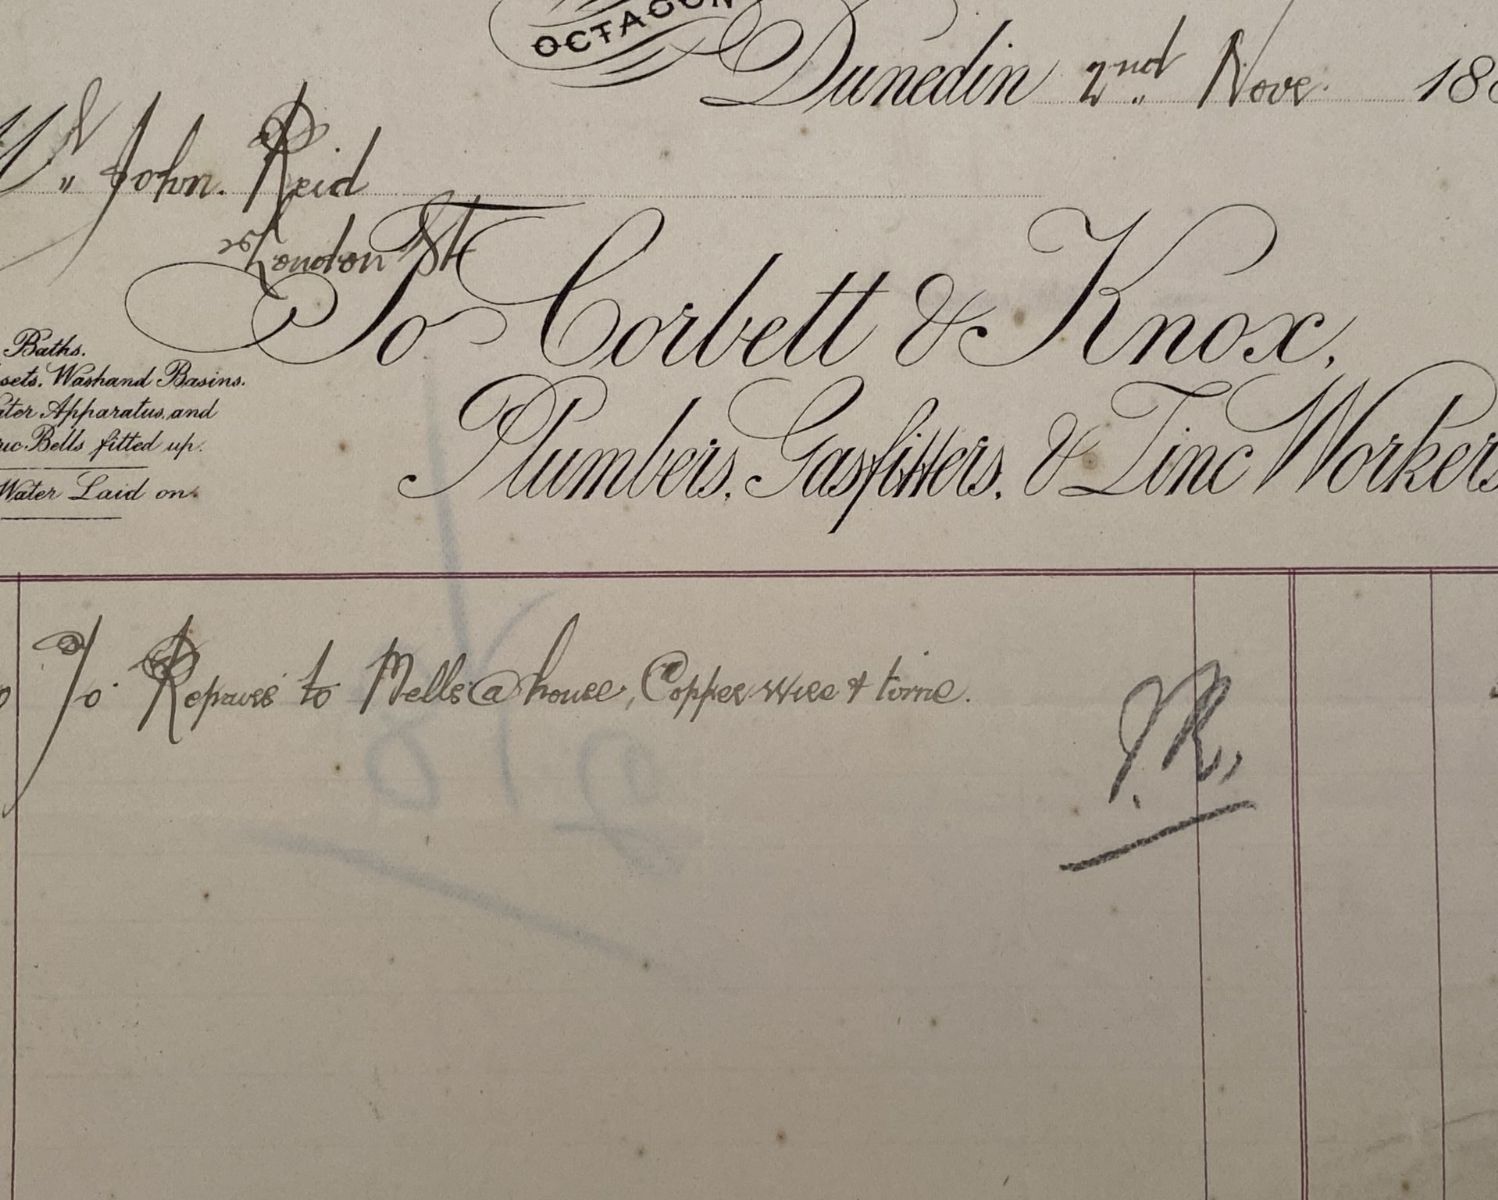 OCTAGON
Dunedin 2nd Nove. 188
Mr John. Reid
London St
To Corbett & Knox,
Baths.
sets. Washand Basins.
ter Apparatus, and
ric Bells fitted up.
Water Laid on.
Plumbers, Gasfitters, & Zinc Workers
To Repairs to Bells @ house, Copper wire & time.
JR,